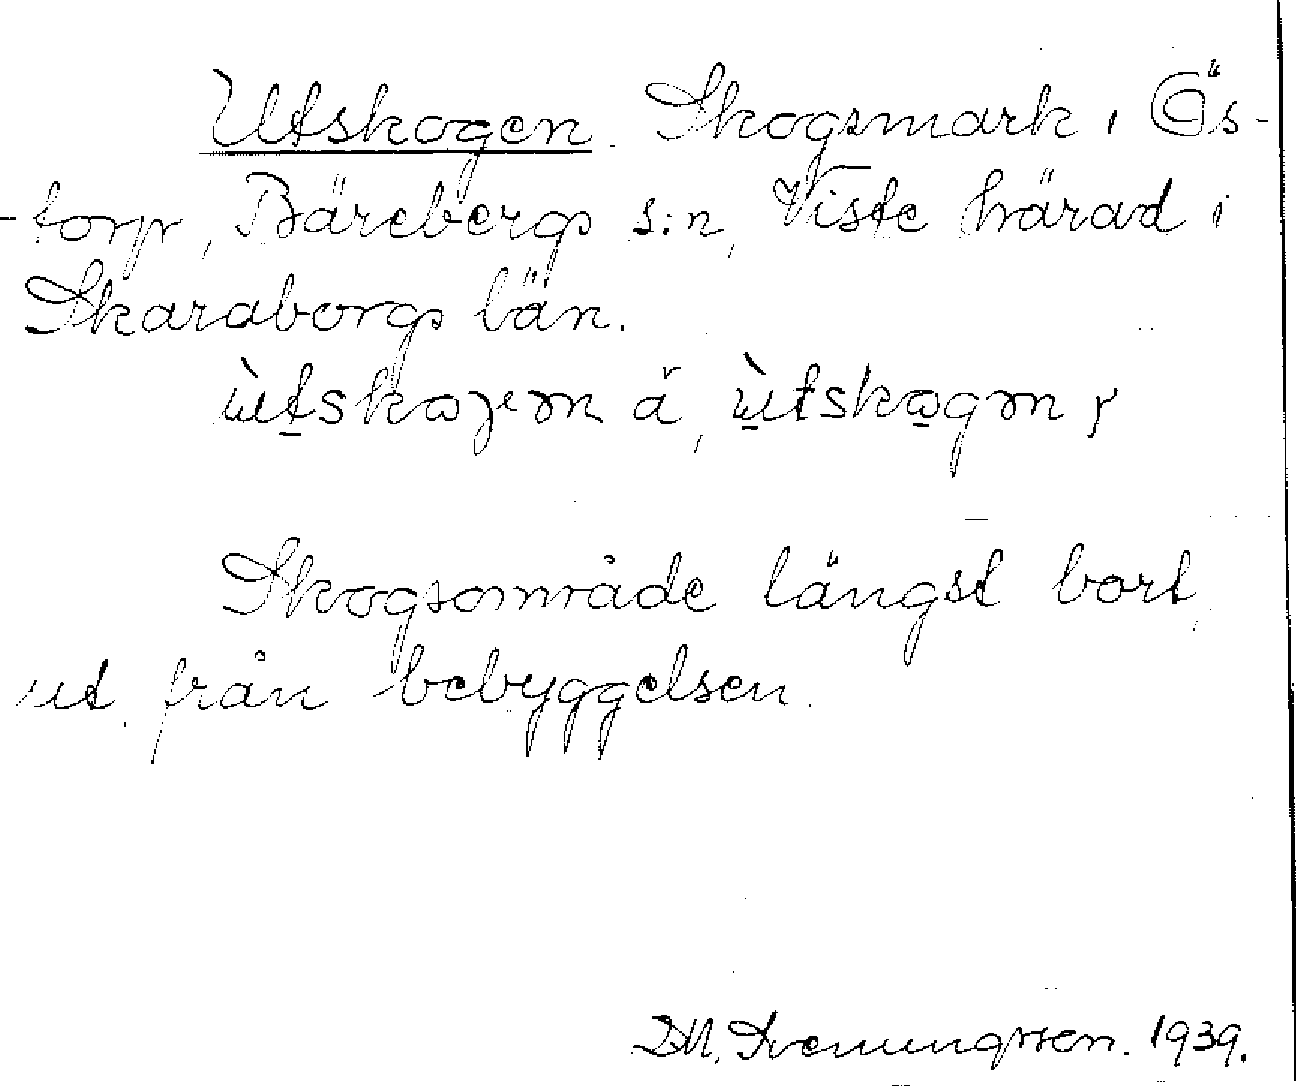 Utskogen. Skogsmark i Ös-
-torp, Bärebergs s:n, Viste härad i
Skaraborgs län.

Skogsområde längst bort,
ut från bebyggelsen.
1939.